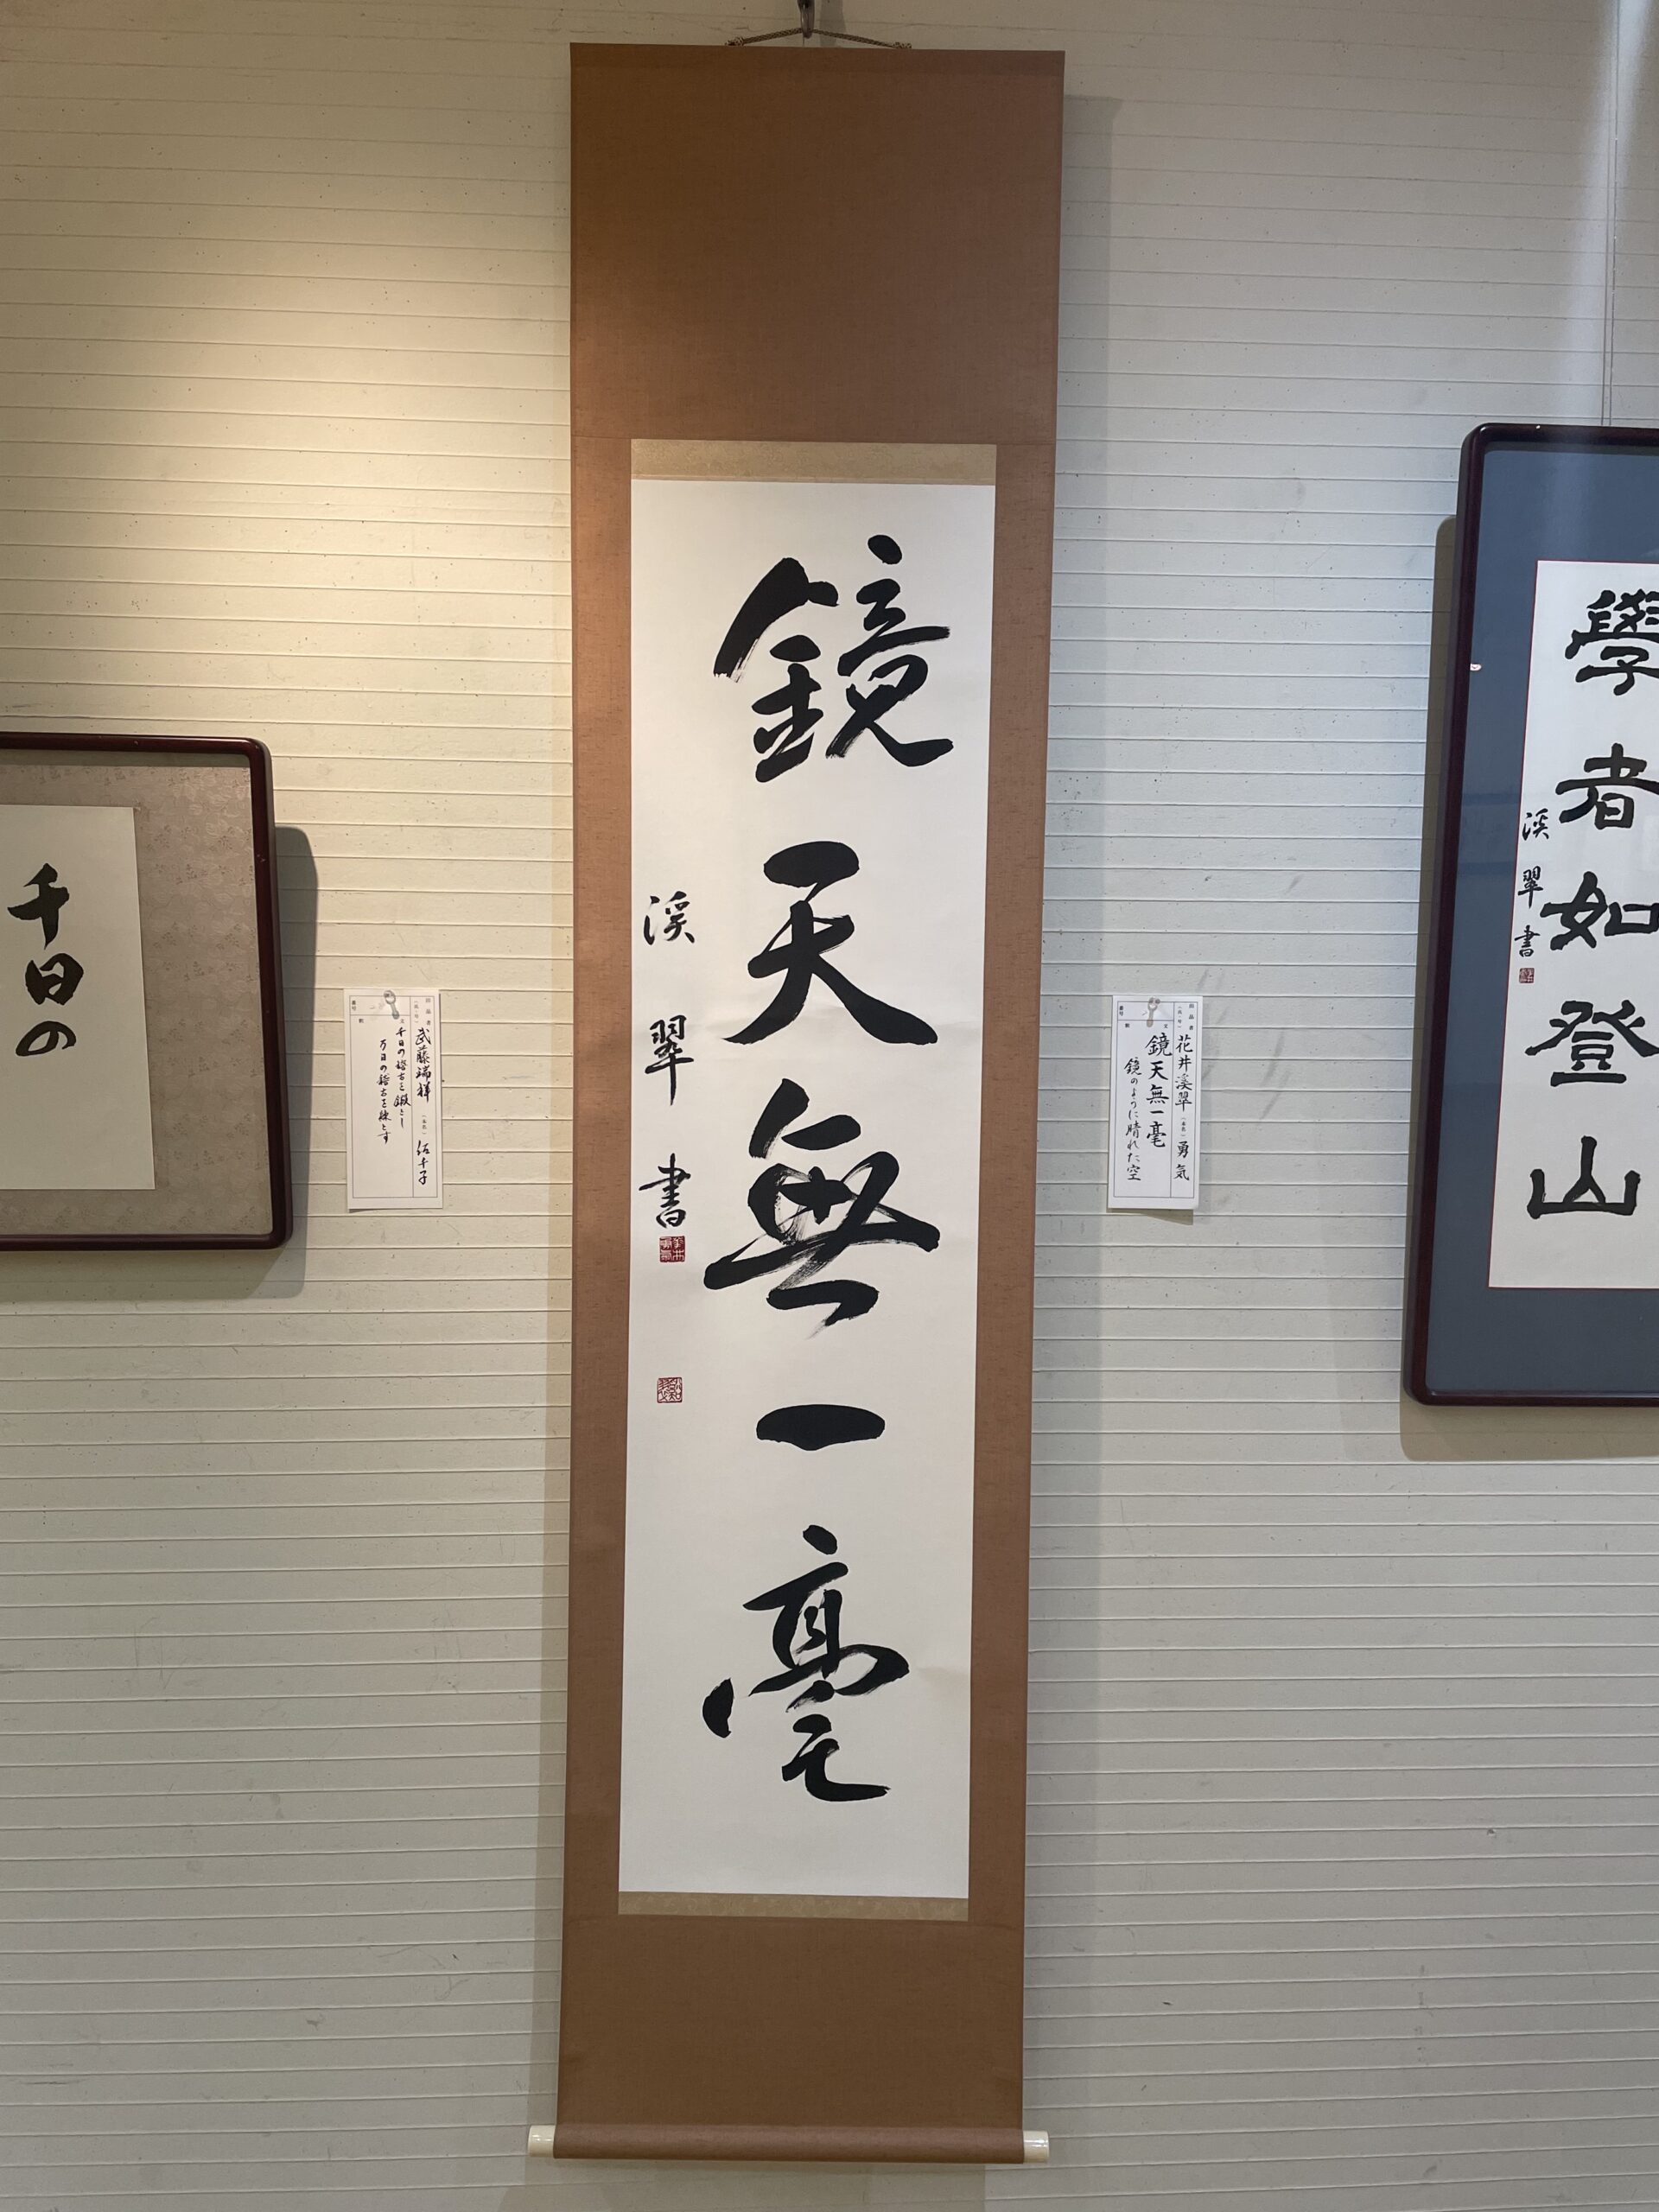 鏡天無一毫
渓翠書
花井渓翠
勇気
鏡天無一毫
鏡のように晴れた空
學者如登山
渓翠書
千日の
武藤瑞祥
千日の稽古を鍛とし
万日の稽古を練とす